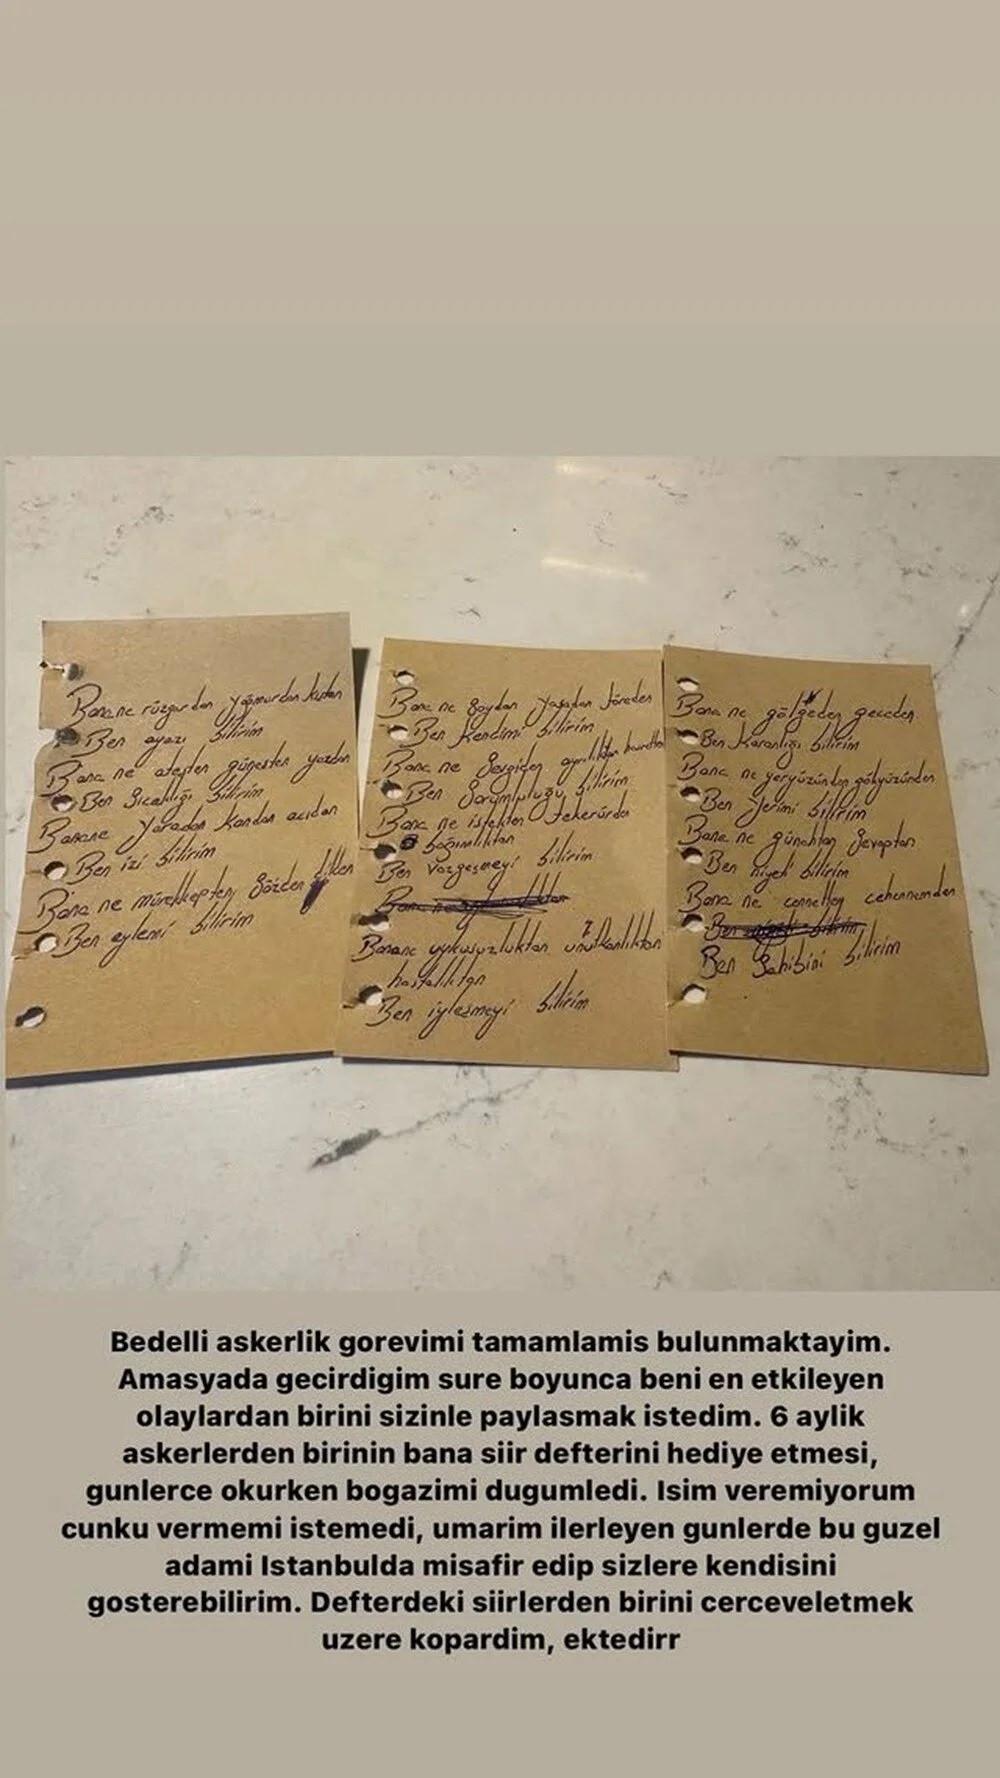 Banane rüzgardan yağmurdan kıştan
Ben ayazı bilirim
Bana ne ateşten güneşten yazdan
Ben Sıcaklığı bilirim
Banane yaradan kandan acıdan
Ben izi bilirim
Bana ne mürekkepten sözden dilden
Ben eylemi bilirim
Bana ne Soydan yasadan töreden
Ben Kendimi bilirim
Bana ne Sevgiden ayrılıktan hasretten
Ben Sorumluluğu bilirim
Bana ne istekten tekerürden
bağımlılıktan
Ben Vazgeçmeyi bilirim
Banane uykusuzluktan unutkanlıktan
hastalıktan
Ben iyleşmeyi bilirim
Bana ne gölgeden geceden
Ben Karanlığı bilirim
Bana ne yeryüzünden gökyüzünden
Ben Yerimi bilirim
Bana ne günahtan Sevaptan
Ben niyeti bilirim
Bana ne cennetten cehennemden
Ben Sahibini bilirim
Bedelli askerlik gorevimi tamamlamis bulunmaktayim.
Amasyada gecirdigim sure boyunca beni en etkileyen
olaylardan birini sizinle paylasmak istedim. 6 aylik
askerlerden birinin bana siir defterini hediye etmesi,
gunlerce okurken bogazimi dugumledi. Isim veremiyorum
cunku vermemi istemedi, umarim ilerleyen gunlerde bu guzel
adami Istanbulda misafir edip sizlere kendisini
gosterebilirim. Defterdeki siirlerden birini cerceveletmek
uzere kopardim, ektedirr